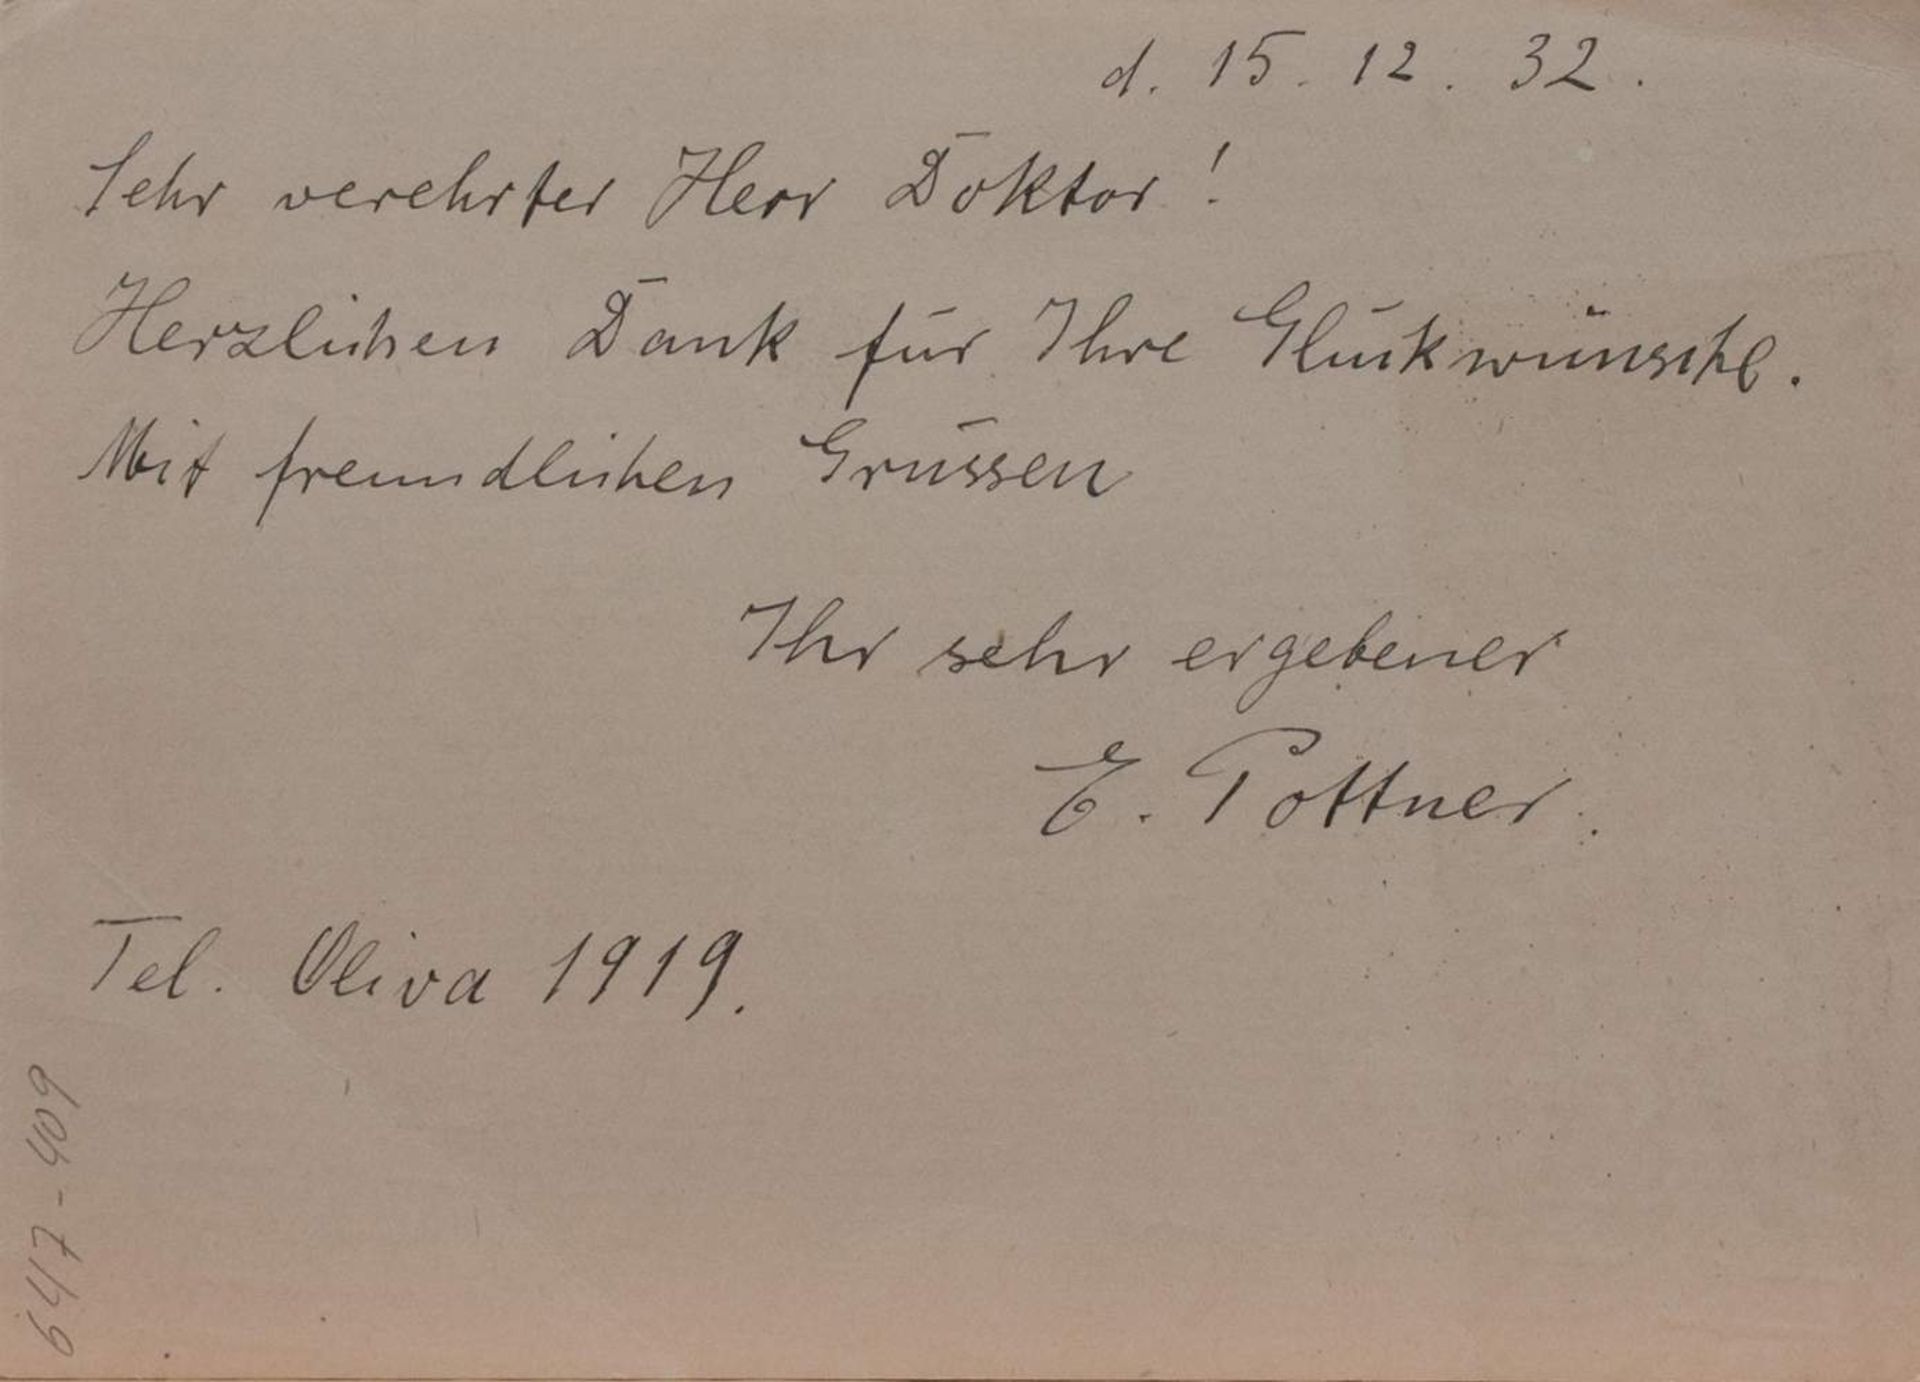 d. 15. 12. 32.
Sehr verehrter Herr Doktor!
Herzlichen Dank für Ihre Glückwünsche.
Mit freundlichen Grüssen
Ihr sehr ergebener
E. Pottner.
Tel. Oliva 1919.
647-409